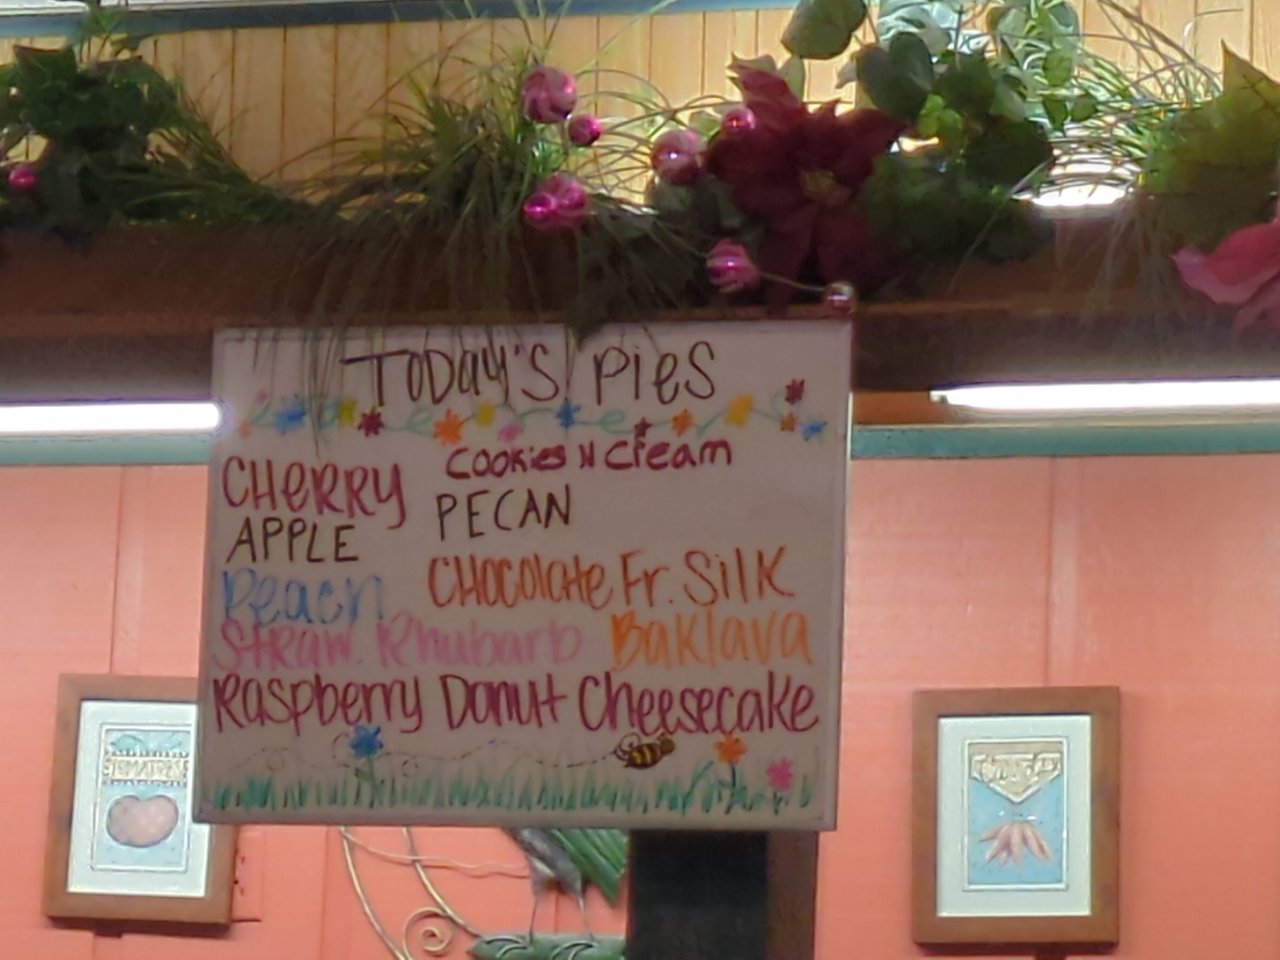 TODAY'S PIES
COOKIES N CREAM
CHERRY
PECAN
APPLE
CHOCOLATE Fr. SILK
Peach
STRAW. Rhubarb
BAKlAVA
RASpberry DONUT CHeesecake
TOMATOES